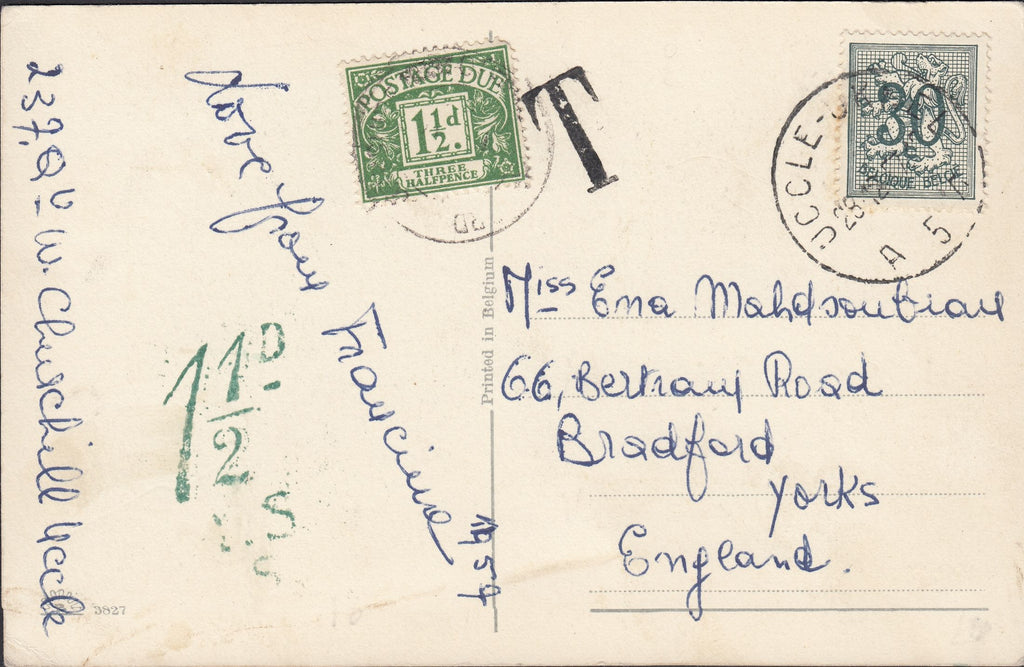 237, Av W. Churchill Uccle
Love from
Francine
1954
1 1/2 D.
3827
Printed in Belgium
POSTAGE DUE
1 1/2 d.
THREE
HALFPENCE
T
30
BELGIQUE BELGIE
UCCLE-
28
A 5
Miss Ena
66, Bertram Road
Bradford
Yorks
England.